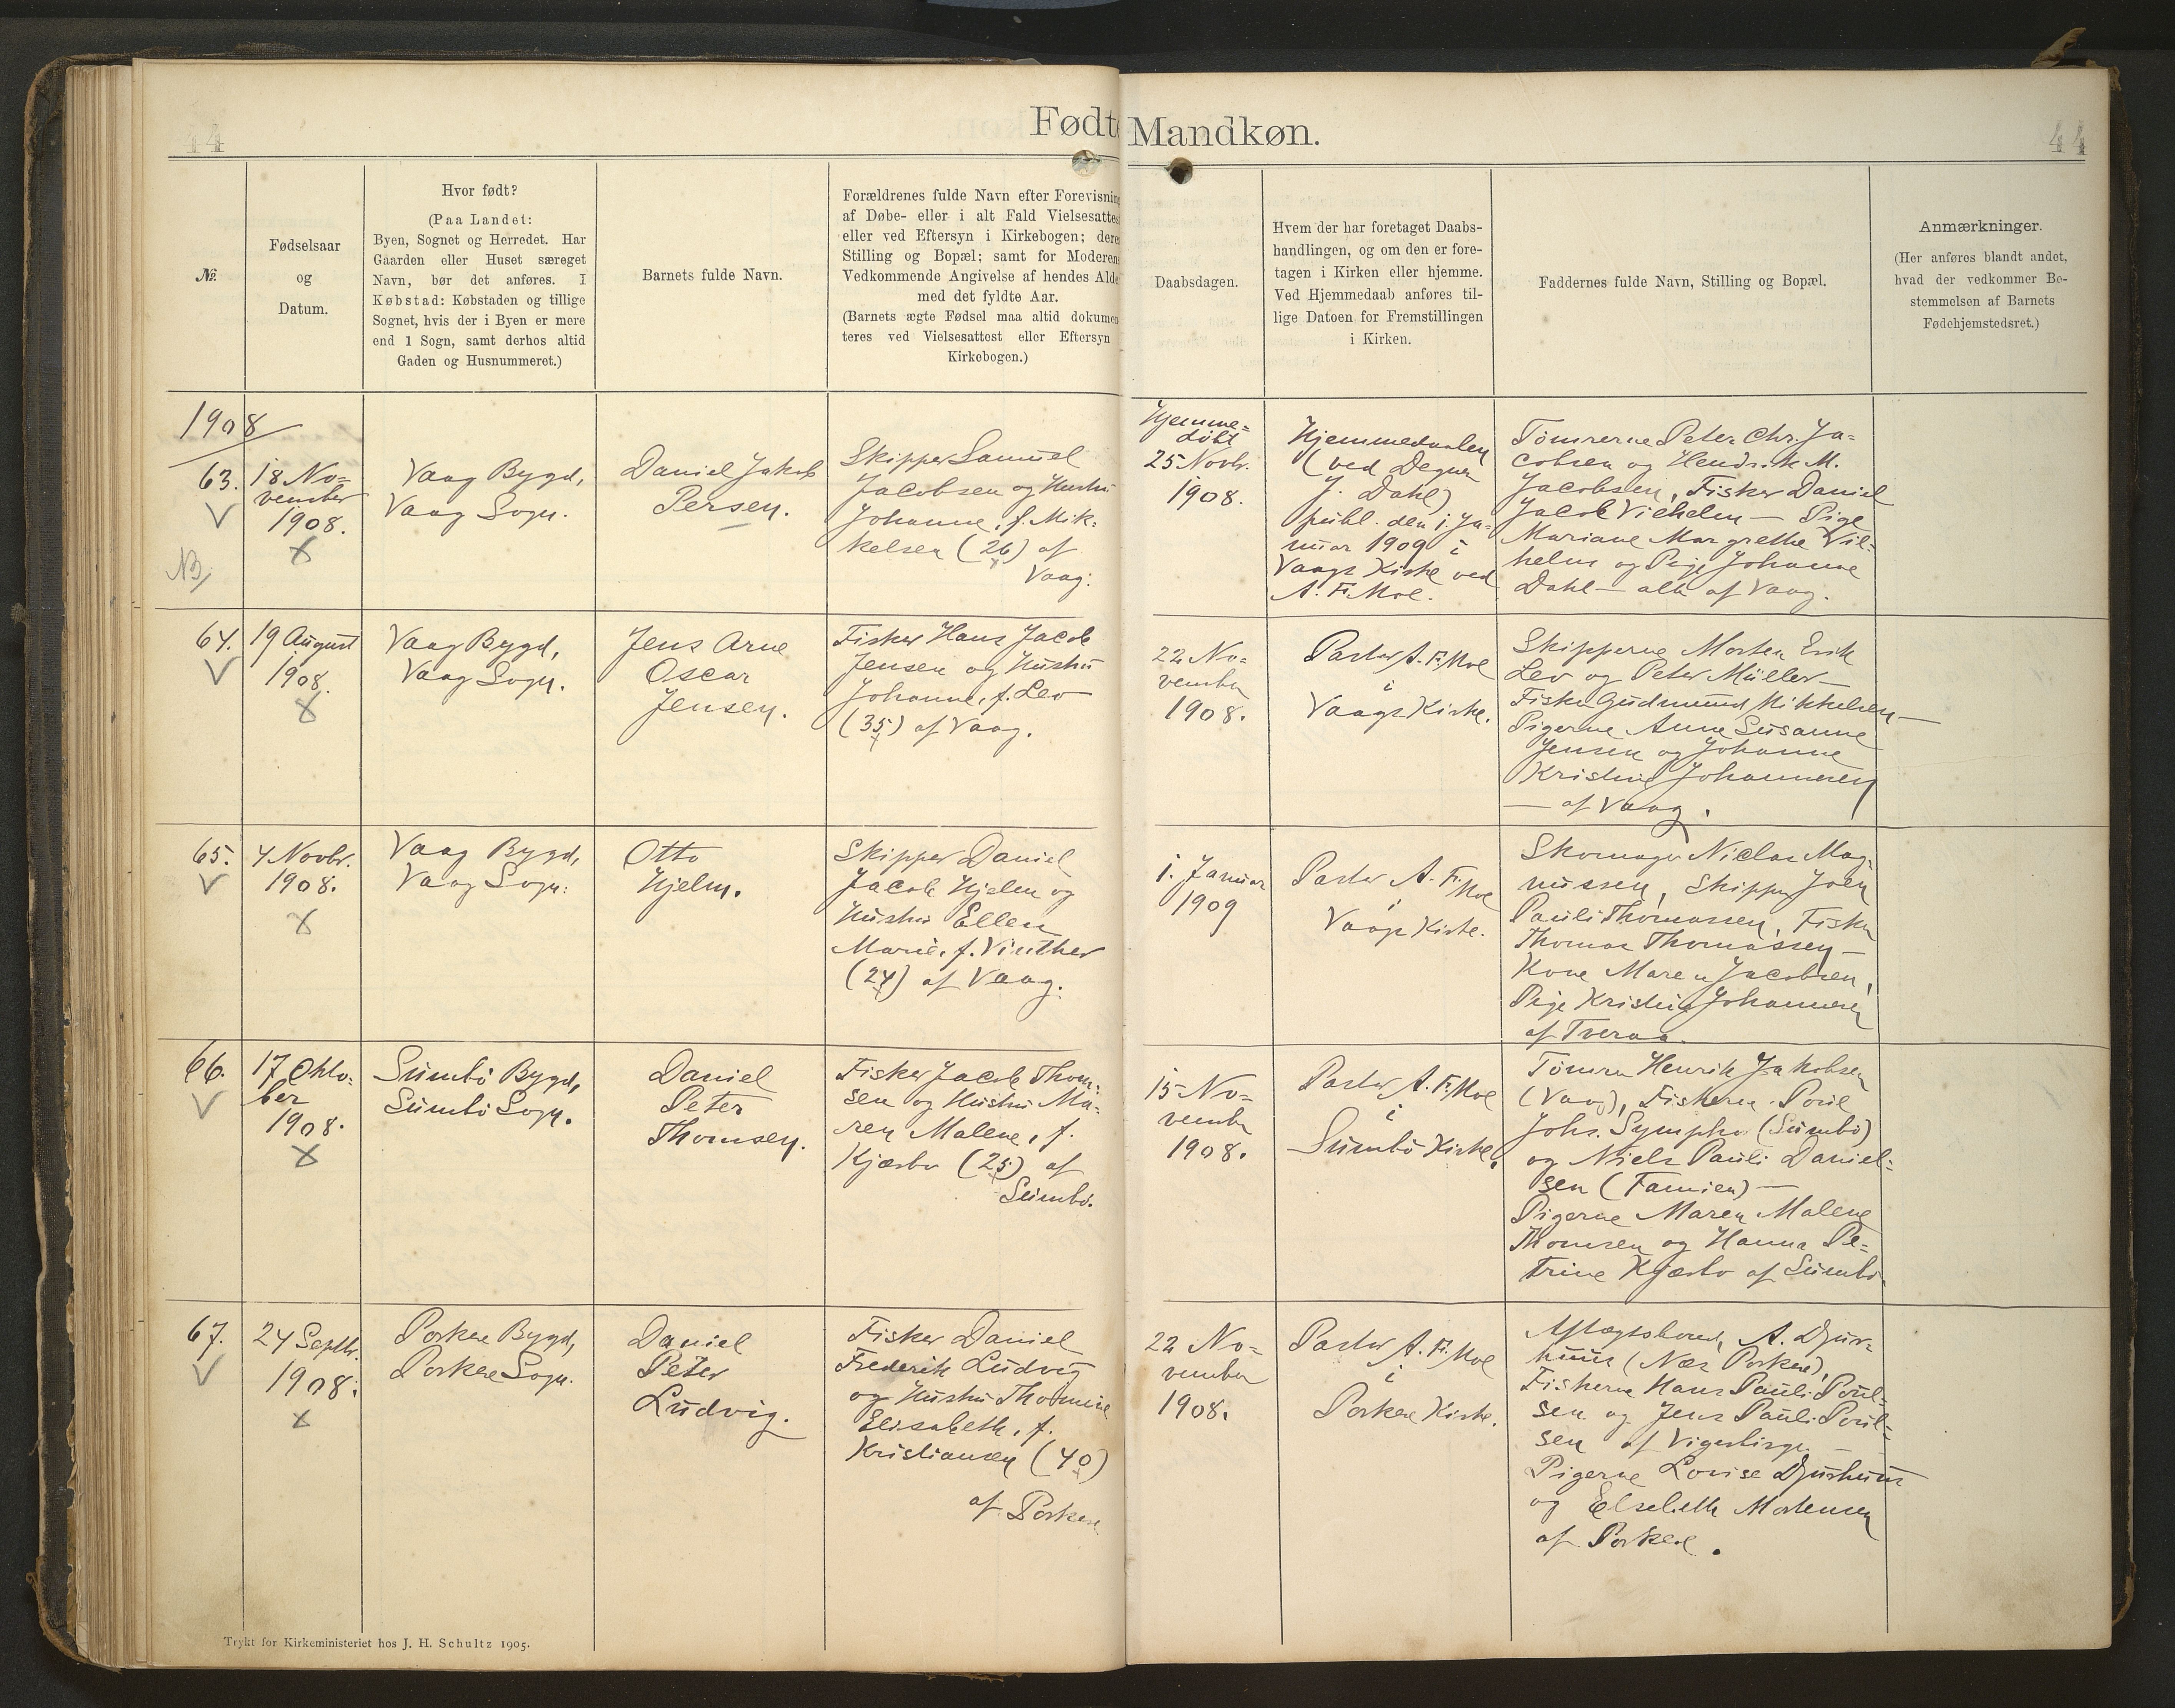 44
Fødte Mandkøn.
44
№
Fødselsaar
og
Datum.
Hvor født?
(Paa Landet:
Byen, Sognet og Herredet. Har
Gaarden eller Huset særeget
Navn, bør det anføres. I
Købstad: Købstaden og tillige
Sognet, hvis der i Byen er mere
end 1 Sogn, samt derhos altid
Gaden og Husnummeret.)
Barnets fulde Navn.
Forældrenes fulde Navn efter Forevisning
af Døbe- eller i alt Fald Vielsesattest
eller ved Eftersyn i Kirkebogen; deres
Stilling og Bopæl; samt for Moderens
Vedkommende Angivelse af hendes Alder
med det fyldte Aar.
(Barnets ægte Fødsel maa altid dokumen
teres ved Vielsesattest eller Eftersyn
Kirkebogen.)
Daabsdagen.
Hvem der har foretaget Daabs-
handlingen, og om den er fore-
tagen i Kirken eller hjemme.
Ved Hjemmedaab anføres til-
lige Datoen for Fremstillingen
i Kirken.
Faddernes fulde Navn, Stilling og Bopæl.
Anmærkninger.
(Her anføres blandt andet,
hvad der vedkommer Be-
stemmelsen af Barnets
Fødehjemstedsret.)
1908
63.
NB
18 No=
vember
1908.
Vaag Bygd,
Vaag Sogn.
Daniel Jakob
Persen.
Skipper Samuel
Jacobsen og Hustru
Johanne, f. Mik=
kelsen (26) af
Vaag.
Hjemme=
døbt
25 Novbr.
1908.
Hjemmedaaben
(ved Degnen
J. Dahl)
publ. den 1. Ja=
nuar 1909 i
Vaags Kirke ved
A. F. Moe.
Tømrerne Peter Chr. Ja=
cobsen og Hendrik M.
Jacobsen, Fisker Daniel
Jacob Vilhelm — Pige
Mariane Margrethe Vil=
helm og Pige Johanne
Dahl — alle af Vaag.
64.
19 August
1908.
Vaag Bygd,
Vaag Sogn.
Jens Arne
Oscar
Jensen.
Fisker Hans Jacob
Jensen og Hustru
Johanne, f. Lev
(35) af Vaag.
22 No=
vember
1908.
Pastor A. F. Moe
i
Vaags Kirke.
Skipperne Morten Erik
Lev og Peter Müller —
Fisker Gudmund Mikkelsen —
Pigerne Anne Susanne
Jensen og Johanne
Kristine Johannesen
— af Vaag.
65.
4 Novbr.
1908.
Vaag Bygd,
Vaag Sogn.
Otto
Hjelm.
Skipper Daniel
Jacob Hjelm og
Hustru Ellen
Marie, f. Vinther
(24) af Vaag.
1. Januar
1909
Pastor A. F. Moe
i
Vaags Kirke.
Skomager Niclas Mag=
nussen, Skipper Joen
Pauli Thomassen, Fisker
Thomas Thomassen —
Kone Maren Jacobsen,
Pige Kristine Johannesen
af Tveraa.
66.
17 Okto=
ber
1908.
Sumbø Bygd,
Sumbø Sogn.
Daniel
Peter
Thomsen.
Fisker Jacob Thom=
sen og Hustru Ma=
ren Malene, f.
Kjærbo (25) af
Sumbø.
15 No=
vember
1908.
Pastor A. F. Moe
i
Sumbø Kirke.
Tømrer Henrik Jakobsen
(Vaag), Fiskerne Poul
Johs. Sympho (Sumbø)
og Niels Pauli Daniel=
sen (Famien) —
Pigerne Maren Malene
Thomsen og Hanna Pe=
trine Kjærbo af Sumbø.
67.
24 Septbr.
1908.
Porkere Bygd,
Porkere Sogn.
Daniel
Peter
Ludvig.
Fisker Daniel
Frederik Ludvig
og Hustru Thomine
Elisabeth, f.
Kristiansen (40)
af Porkere
22 No=
vember
1908.
Pastor A. F. Moe
i
Porkere Kirke.
A. Djur=
huus (Næs Porkere),
Fiskerne Hans Pauli Poul=
sen og Jens Pauli Poul=
sen af Vigerbirge. —
Pigerne Lovise Djurhuus
og Elsebeth Mortensen
af Porkere.
Trykt for Kirkeministeriet hos J. H. Schultz 1905.